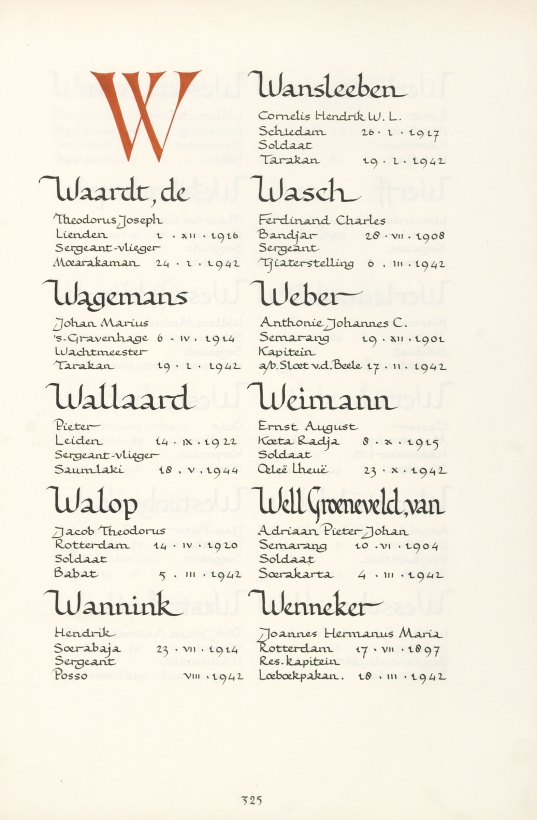 W
Waardt, de
Theodorus Joseph
Lienden 1 · XII · 1916
Sergeant-vlieger
Moearakaman 24 · 1 · 1942
Wagemans
Johan Marius
's-Gravenhage 6 · IV · 1914
Wachtmeester
Tarakan 19 · 1 · 1942
Wallaard
Pieter
Leiden 14 · IX · 1922
Sergeant-vlieger
Saumlaki 18 · V · 1944
Walop
Jacob Theodorus
Rotterdam 14 · IV · 1920
Soldaat
Babat 5 · III · 1942
Wannink
Hendrik
Soerabaja 23 · VII · 1914
Sergeant
Posso VIII · 1942
Wansleeben
Cornelis Hendrik W. L.
Schiedam 26 · 1 · 1917
Soldaat
Tarakan 19 · 1 · 1942
Wasch
Ferdinand Charles
Bandjar 28 · VII · 1908
Sergeant
Tjiaterstelling 6 · III · 1942
Weber
Anthonie Johannes C.
Semarang 19 · XII · 1901
Kapitein
a/b. Sloet v.d. Beele 17 · 11 · 1942
Weimann
Ernst August
Koeta Radja 8 · X · 1915
Soldaat
Oeleë Lheuë 23 · X · 1942
Well Groeneveld, van
Adriaan Pieter Johan
Semarang 10 · VI · 1904
Soldaat
Soerakarta 4 · III · 1942
Wenneker
Joannes Hermanus Maria
Rotterdam 17 · VII · 1897
Res. kapitein
Loeboekpakan. 18 · III · 1942
325